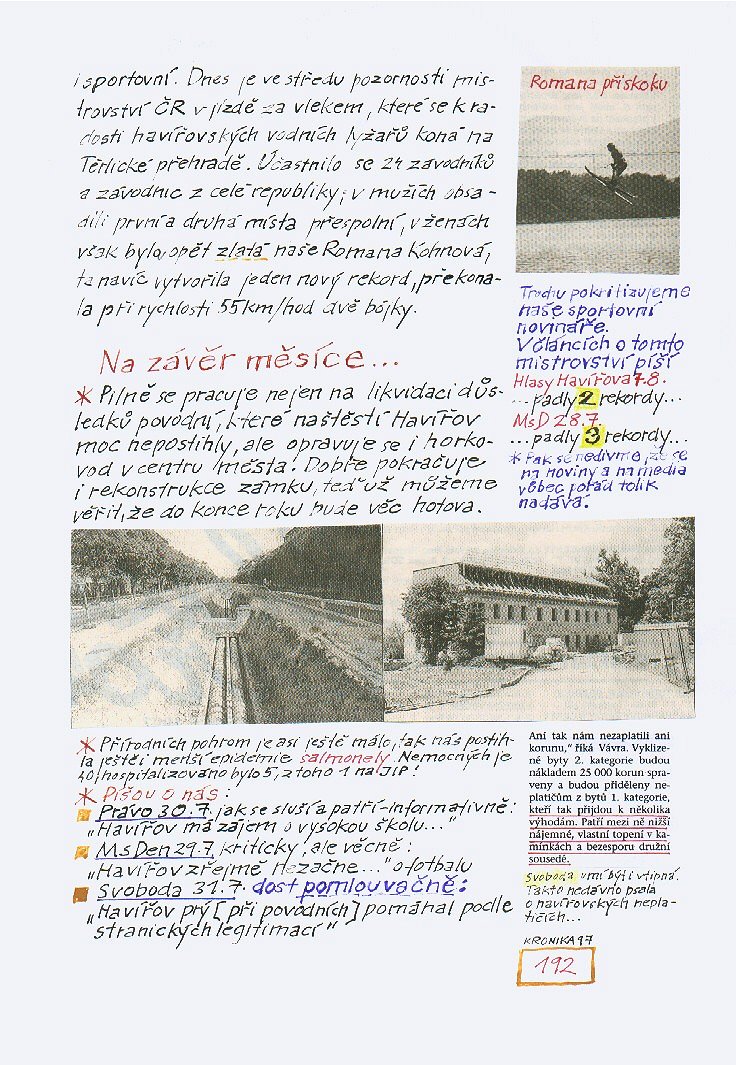 i sportovní. Dnes je ve středu pozornosti mis-
trovství ČR v jízdě za vlekem, které se k ra-
dosti havířovských vodních lyžařů koná na
Těrlické přehradě. Účastnilo se 24 závodníků
a závodnic z celé republiky; v mužích obsa-
dili první a druhá místa přespolní, v ženách
však bylo, opět zlatá naše Romana Kohnová,
ta navíc vytvořila jeden nový rekord, překona-
la při rychlosti 55 km/hod dvě bójky.
Romana při skoku
Trochu pokritizujeme
naše sportovní
novináře.
V článcích o tomto
mistrovství píší
Hlasy Havířova 7.8.
...padly 2 rekordy...
MsD 28.7.
...padly 3 rekordy...
* Pak se nedivme, že se
na noviny a na media
vůbec pořád tolik
nadává.
Na závěr měsíce...
* Pilně se pracuje nejen na likvidaci důs-
ledků povodní, které naštěstí Havířov
moc nepostihly, ale opravuje se i horko-
vod v centru města. Dobře pokračuje
i rekonstrukce zámku, teď už můžeme
věřit, že do konce roku bude věc hotova.
* Přírodních pohrom je asi ještě málo, tak nás postih-
la ještě i menší epidemie salmonely. Nemocných je
40, hospitalizováno bylo 5, z toho 1 na JIP!
* Píšou o nás:
Právo 30.7. jak se sluší a patří - informativně:
„Havířov má zájem o vysokou školu..."
MsDen 29.7. kriticky, ale věcně:
„Havířov zřejmě nezačne..." o fotbalu
Svoboda 31.7. dost pomlouvačně:
„Havířov prý [při povodních] pomáhal podle
stranických legitimací"
Ani tak nám nezaplatili ani
korunu," říká Vávra. Vyklize-
né byty 2. kategorie budou
nákladem 25 000 korun spra-
veny a budou přiděleny ne-
platičům z bytů 1. kategorie,
kteří tak přijdou k několika
výhodám. Patří mezi ně nižší
nájemné, vlastní topení v ka-
mínkách a bezesporu družní
sousedé.
Svoboda umí být i vtipná.
Takto nedávno psala
o havířovských nepla-
tičích...
KRONIKA 97
192